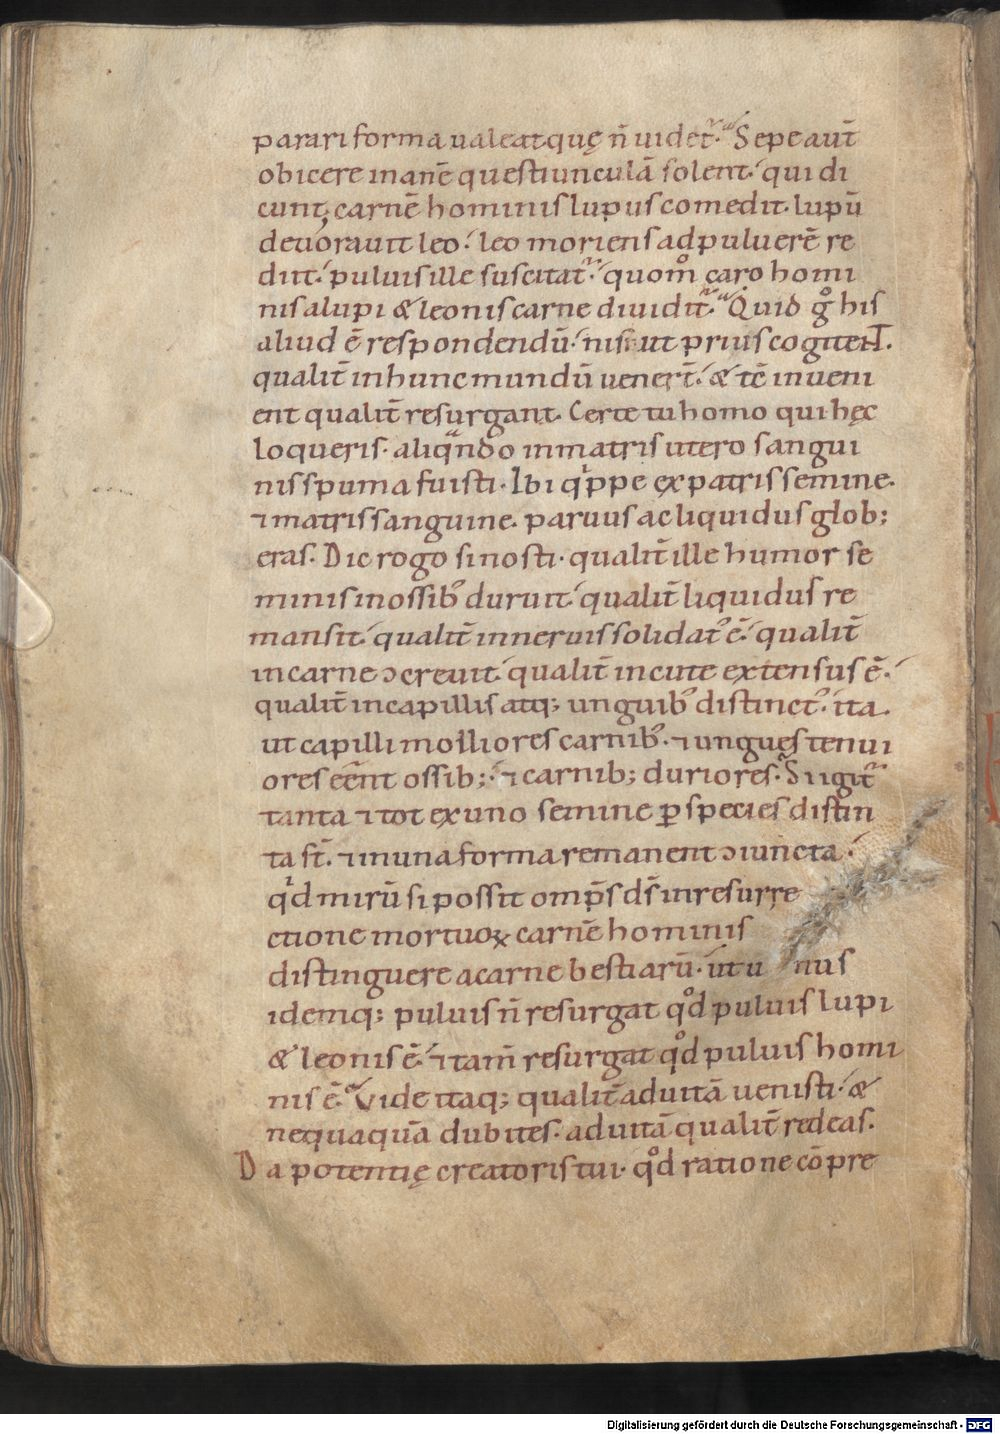 parari forma ualeat quę n̄ uidet᷑. Sepe aut̄
obicere inanē questiunculā solent. qui di
cunt; carnē hominis lupus comedit. lupū
deuorauit leo. leo moriens ad puluerē re
diit. puluis ille suscitat᷑. quom̊ caro homi
nis a lupi & leonis carne diuidit᷑. Quid gͦ his
aliud ē respondendū. nisi ut prius cogitent.
qualit̄ in hunc mundū uener̄t. & tē inueni
ent qualit̄ resurgant. Certe tu homo qui hęc
loqueris. aliqᵃndo in matris utero sangui
nis spuma fuisti. Ibi qͥppe ex patris semine.
⁊ matris sanguine. paruus ac liquidus glob;
eras. Dic rogo si nosti. qualit̄ ille humor se
minis in ossib᷒ duruit. qualit̄ liquidus re
mansit. qualit̄ in neruis solidat᷒ ē. qualit̄
in carne ↄcreuit. qualit̄ in cute extensus ē.
qualit̄ in capillis atq; unguib᷒ distinct᷒. ita
ut capilli molliores carnib᷒. ⁊ ungues tenui
ores eēnt ossib;. ⁊ carnib; duriores. Si igit᷑
tanta ⁊ tot ex uno semine ꝑ species distin
ta st̄. ⁊ in una forma remanent ↄiuncta.
qͥd mirū si possit omp̄s ds̄ in resurre
ctione mortuoꝝ carnē hominis
distinguere a carne bestiarū. ut unus
idemq; puluis n̄ resurgat qͦd puluis lupi
& leonis ē. ⁊ tam̄ resurgat qͦd puluis homi
nis ē. Vide itaq; qualit̄ ad uitā uenisti. &
nequaquā dubites. ad uitā qualit̄ redeas.
Da potentię creatoris tui. qͦd ratione cōpre
Digitalisierung gefördert durch die Deutsche Forschungsgemeinschaft - DFG